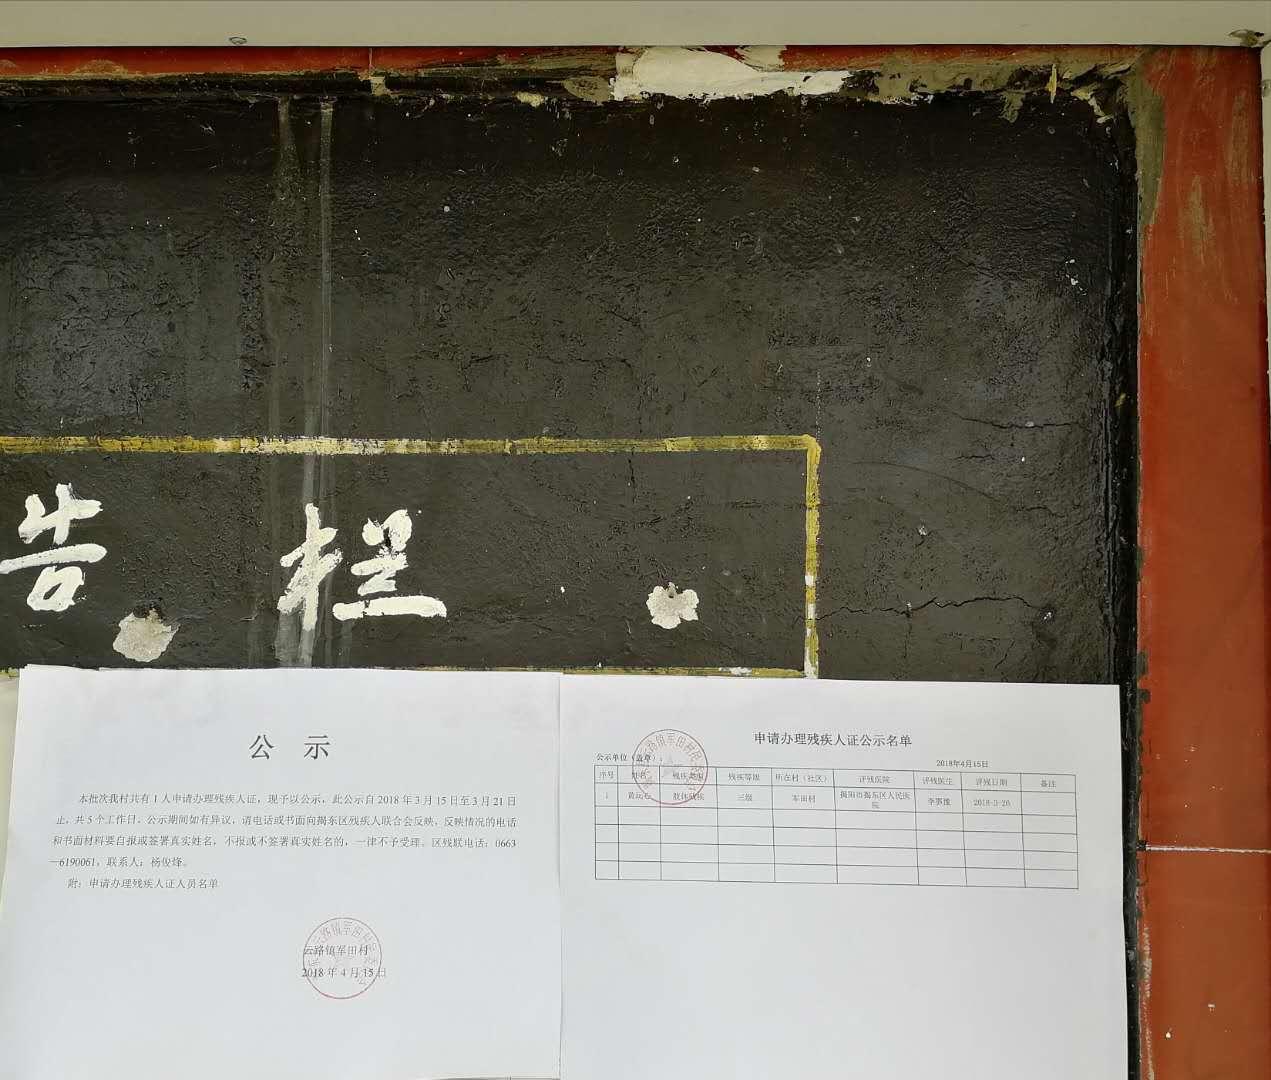 告 栏
公 示
本批次我村共有1人申请办理残疾人证，现予以公示，此公示自2018年3月15日至3月21日
止，共5个工作日。公示期间如有异议，请电话或书面向揭东区残疾人联合会反映，反映情况的电话
和书面材料要自报或签署真实姓名，不报或不签署真实姓名的，一律不予受理。区残联电话：0663
—6190061，联系人：杨俊烽。
附：申请办理残疾人证人员名单
云路镇军田村
2018年4月15日
申请办理残疾人证公示名单
公示单位（盖章）： 2018年4月15日
序号 姓名 残疾类别 残疾等级 所在村（社区） 评残医院 评残医生 评残日期 备注
1 肢体残疾 三级 军田村 揭阳市揭东区人民医院 2018-3-26